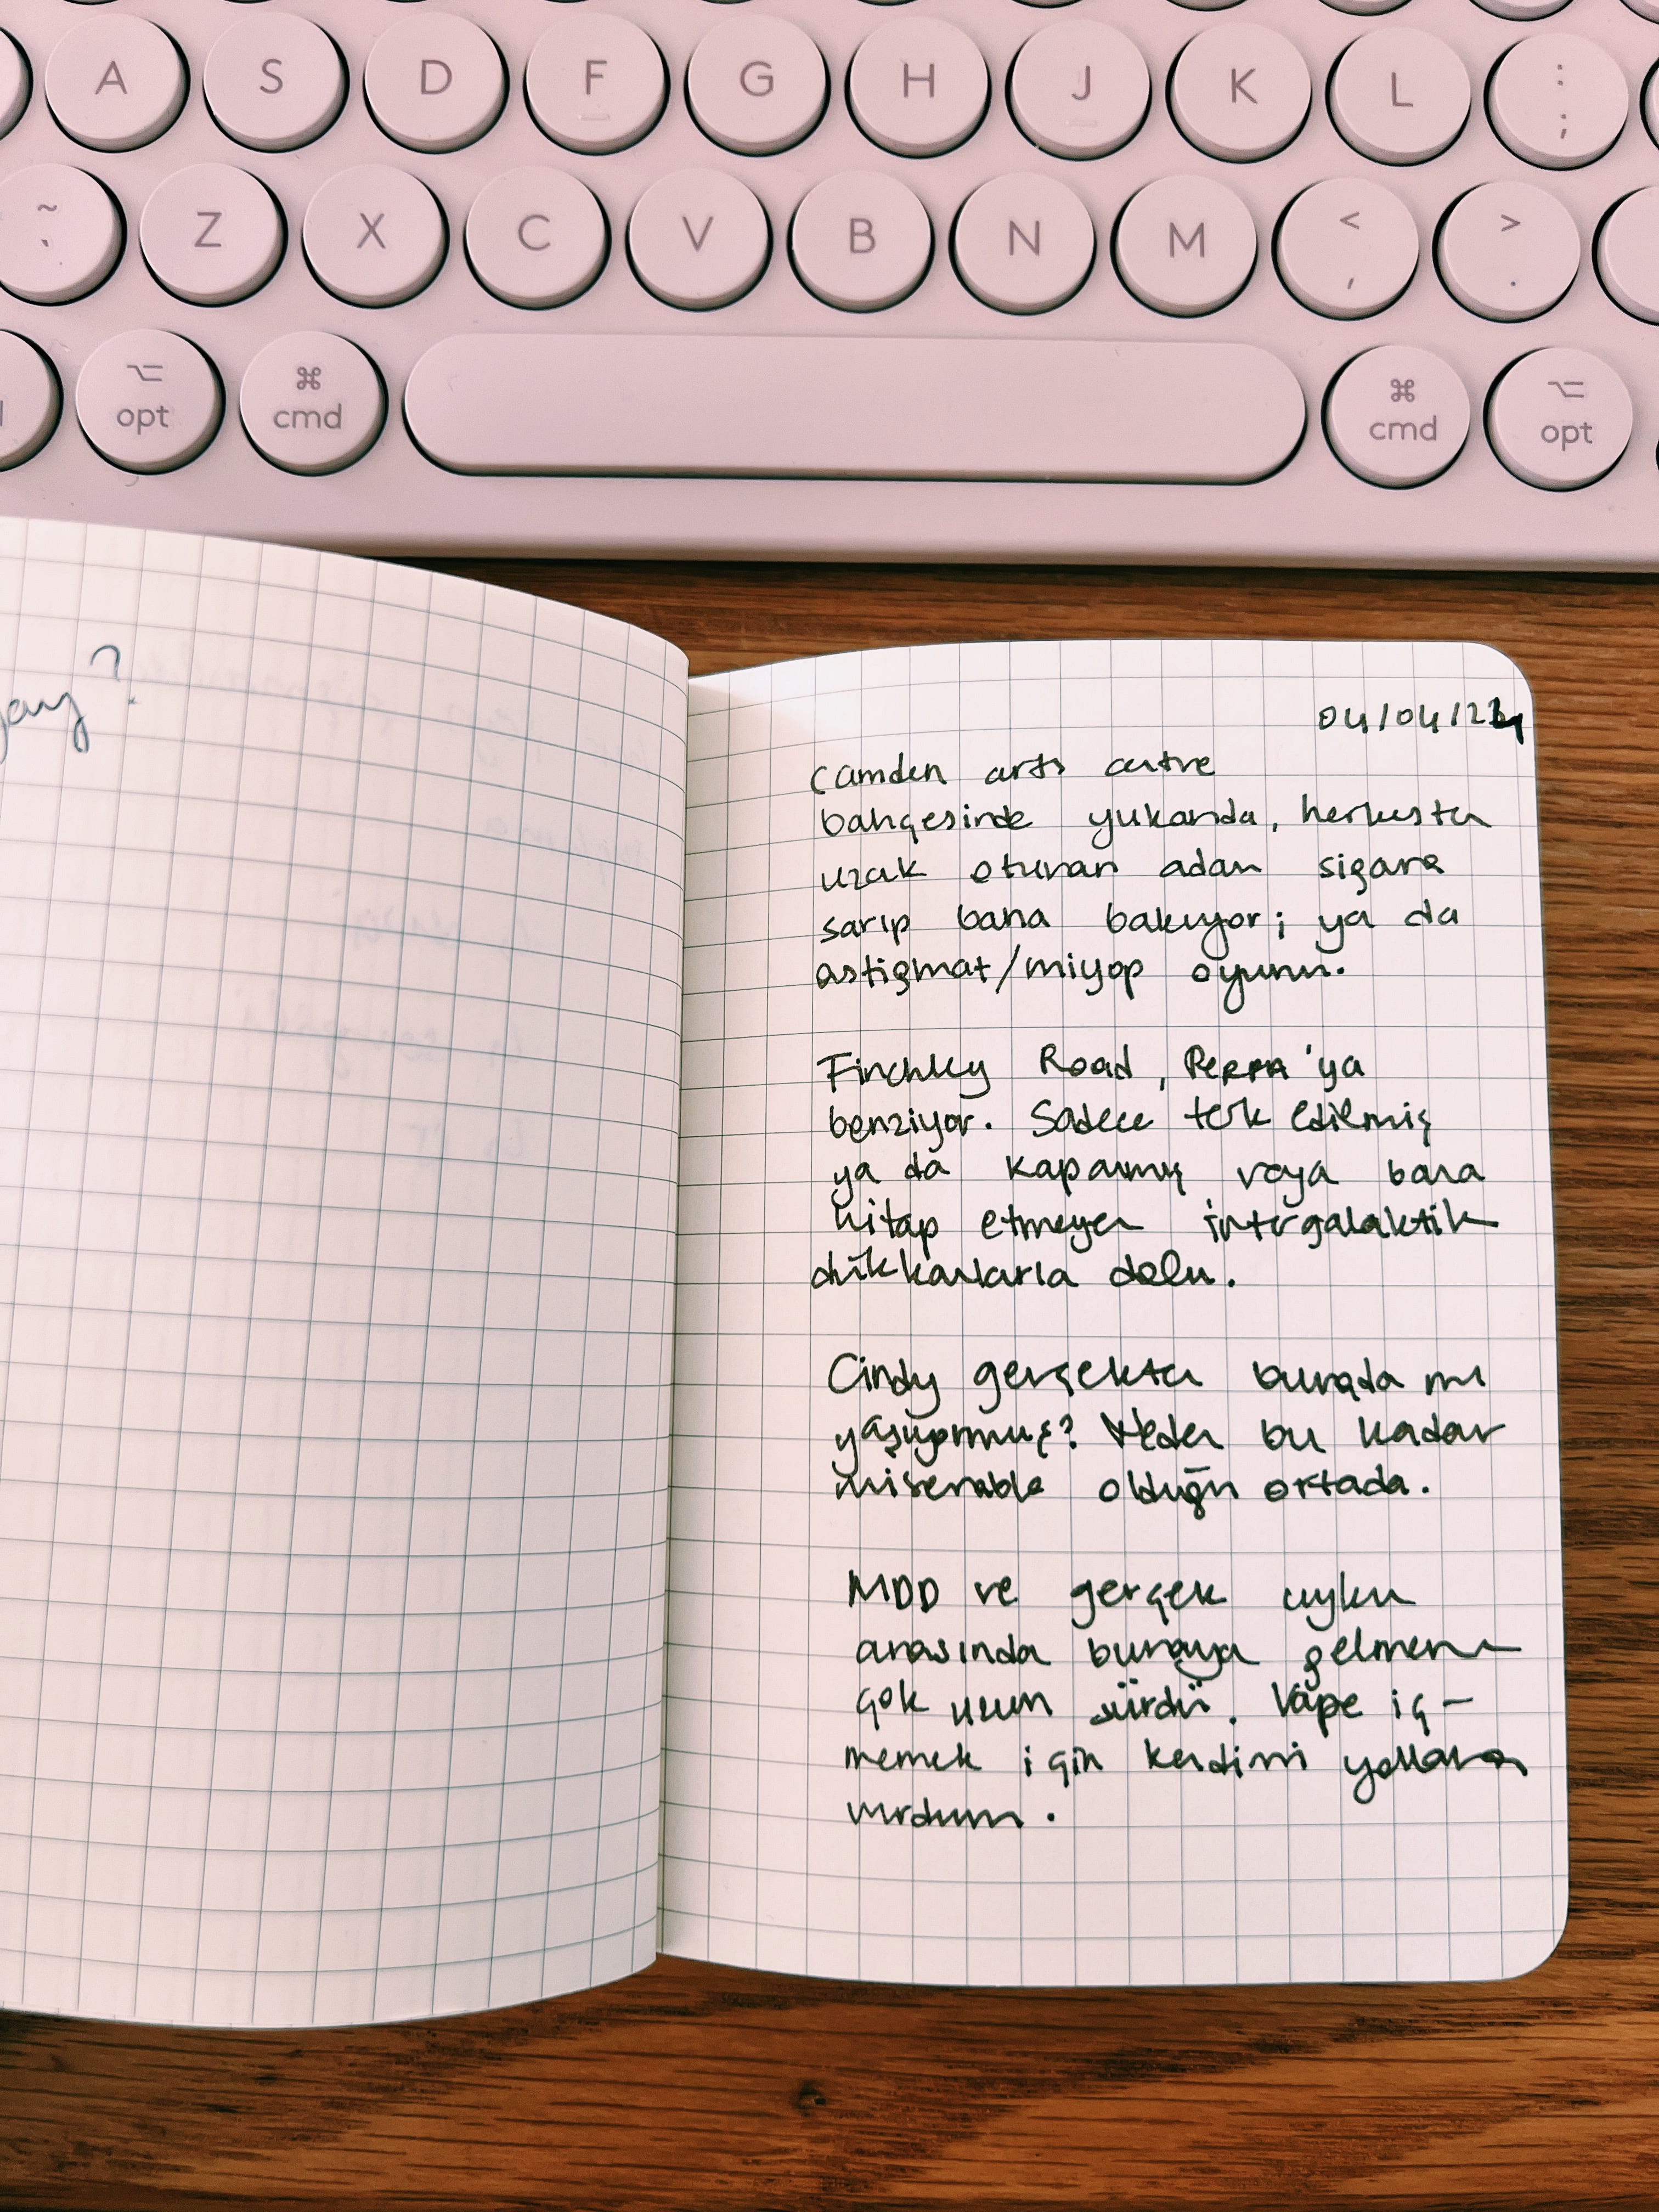 A S D F G H J K L : ;
~ ` Z X C V B N M < , > .
⌥ ⌘ ⌘ ⌥
opt cmd cmd opt
?
04/04/24
Camden arts centre
bahçesinde yukarıda, herkesten
uzak oturan adam sigara
sarıp bana bakıyor; ya da
astigmat/miyop oyunu.
Finchley Road, PERPA'ya
benziyor. Sadece terk edilmiş
ya da kapanmış veya bana
hitap etmeyen intergalaktik
dükkanlarla dolu.
Cindy gerçekten burada mı
yaşıyormuş? Neden bu kadar
miserable olduğu ortada.
MDD ve gerçek uyku
arasında buraya gelmem
çok uzun sürdü. Vape iç-
memek için kendimi yollara
vurdum.